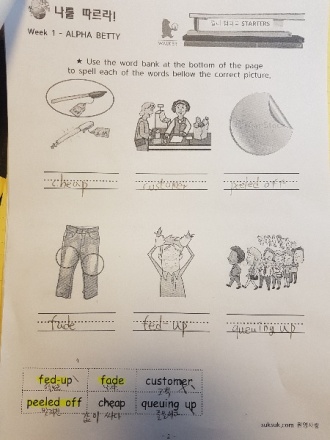 나를 따르라!
Week 1 - ALPHA BETTY
STARTERS
★ Use the word bank at the bottom of the page
to spell each of the words bellow the correct picture.
cheap
costumer
peeled off
fade
fed-up
queuing up
fed-up fade customer
peeled off cheap queuing up
- 2 -